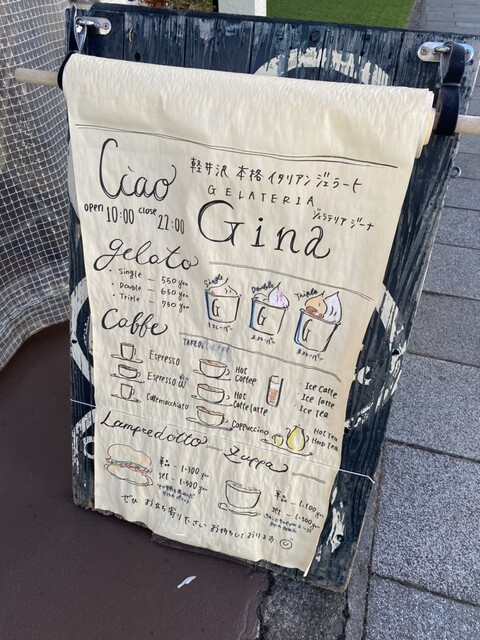 Ciao
軽井沢 本格 イタリアン ジェラート
GELATERIA
open 10:00 close 22:00
Gina
ジェラテリア ジーナ
gelato
・Single — 550 yen
・Double — 650 yen
・Triple — 750 yen
Single
Double
Triple
G
G
G
Caffe
TAKEOUT
Espresso
Espresso W
Caffemacchiato
Hot Coffee
Hot Caffelatte
Cappuccino
Ice Caffe
Ice latte
Ice Tea
Hot Tea
Herb Tea
Lampredotto
Zuppa
単品 — 1,300 yen
set — 1,800 yen
単品 — 1,100 yen
set — 1,500 yen
ぜひ お立ち寄り下さい お待ちしております